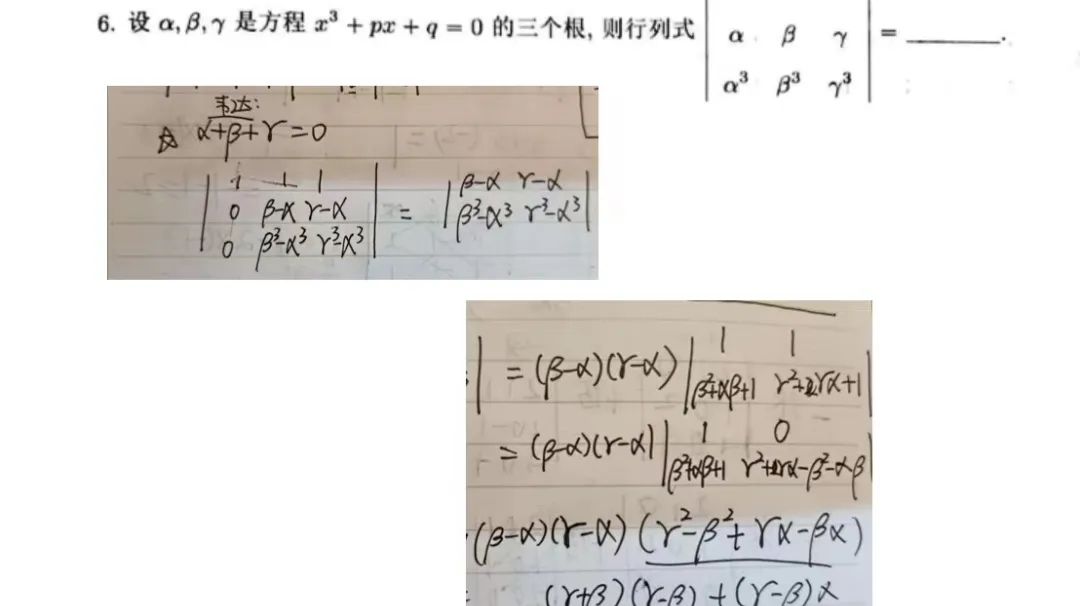 6. 设 α, β, γ 是方程 x³ + px + q = 0 的三个根, 则行列式 | α β γ | = ______.
| α³ β³ γ³ |
韦达:
☆ α+β+γ=0
| 1 1 1 |
| 0 β-α γ-α | = | β-α γ-α |
| 0 β³-α³ γ³-α³ | | β³-α³ γ³-α³ |
| = (β-α)(γ-α) | 1 1 |
| β²+αβ+1 γ²+γα+1 |
= (β-α)(γ-α) | 1 0 |
| β²+αβ+1 γ²+γα-β²-αβ |
(β-α)(γ-α) (γ²-β²+γα-βα)
(γ+β)(γ-β)+(γ-β)α